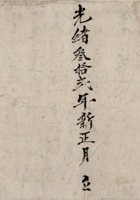 光緒叁拾弍年新正月 立